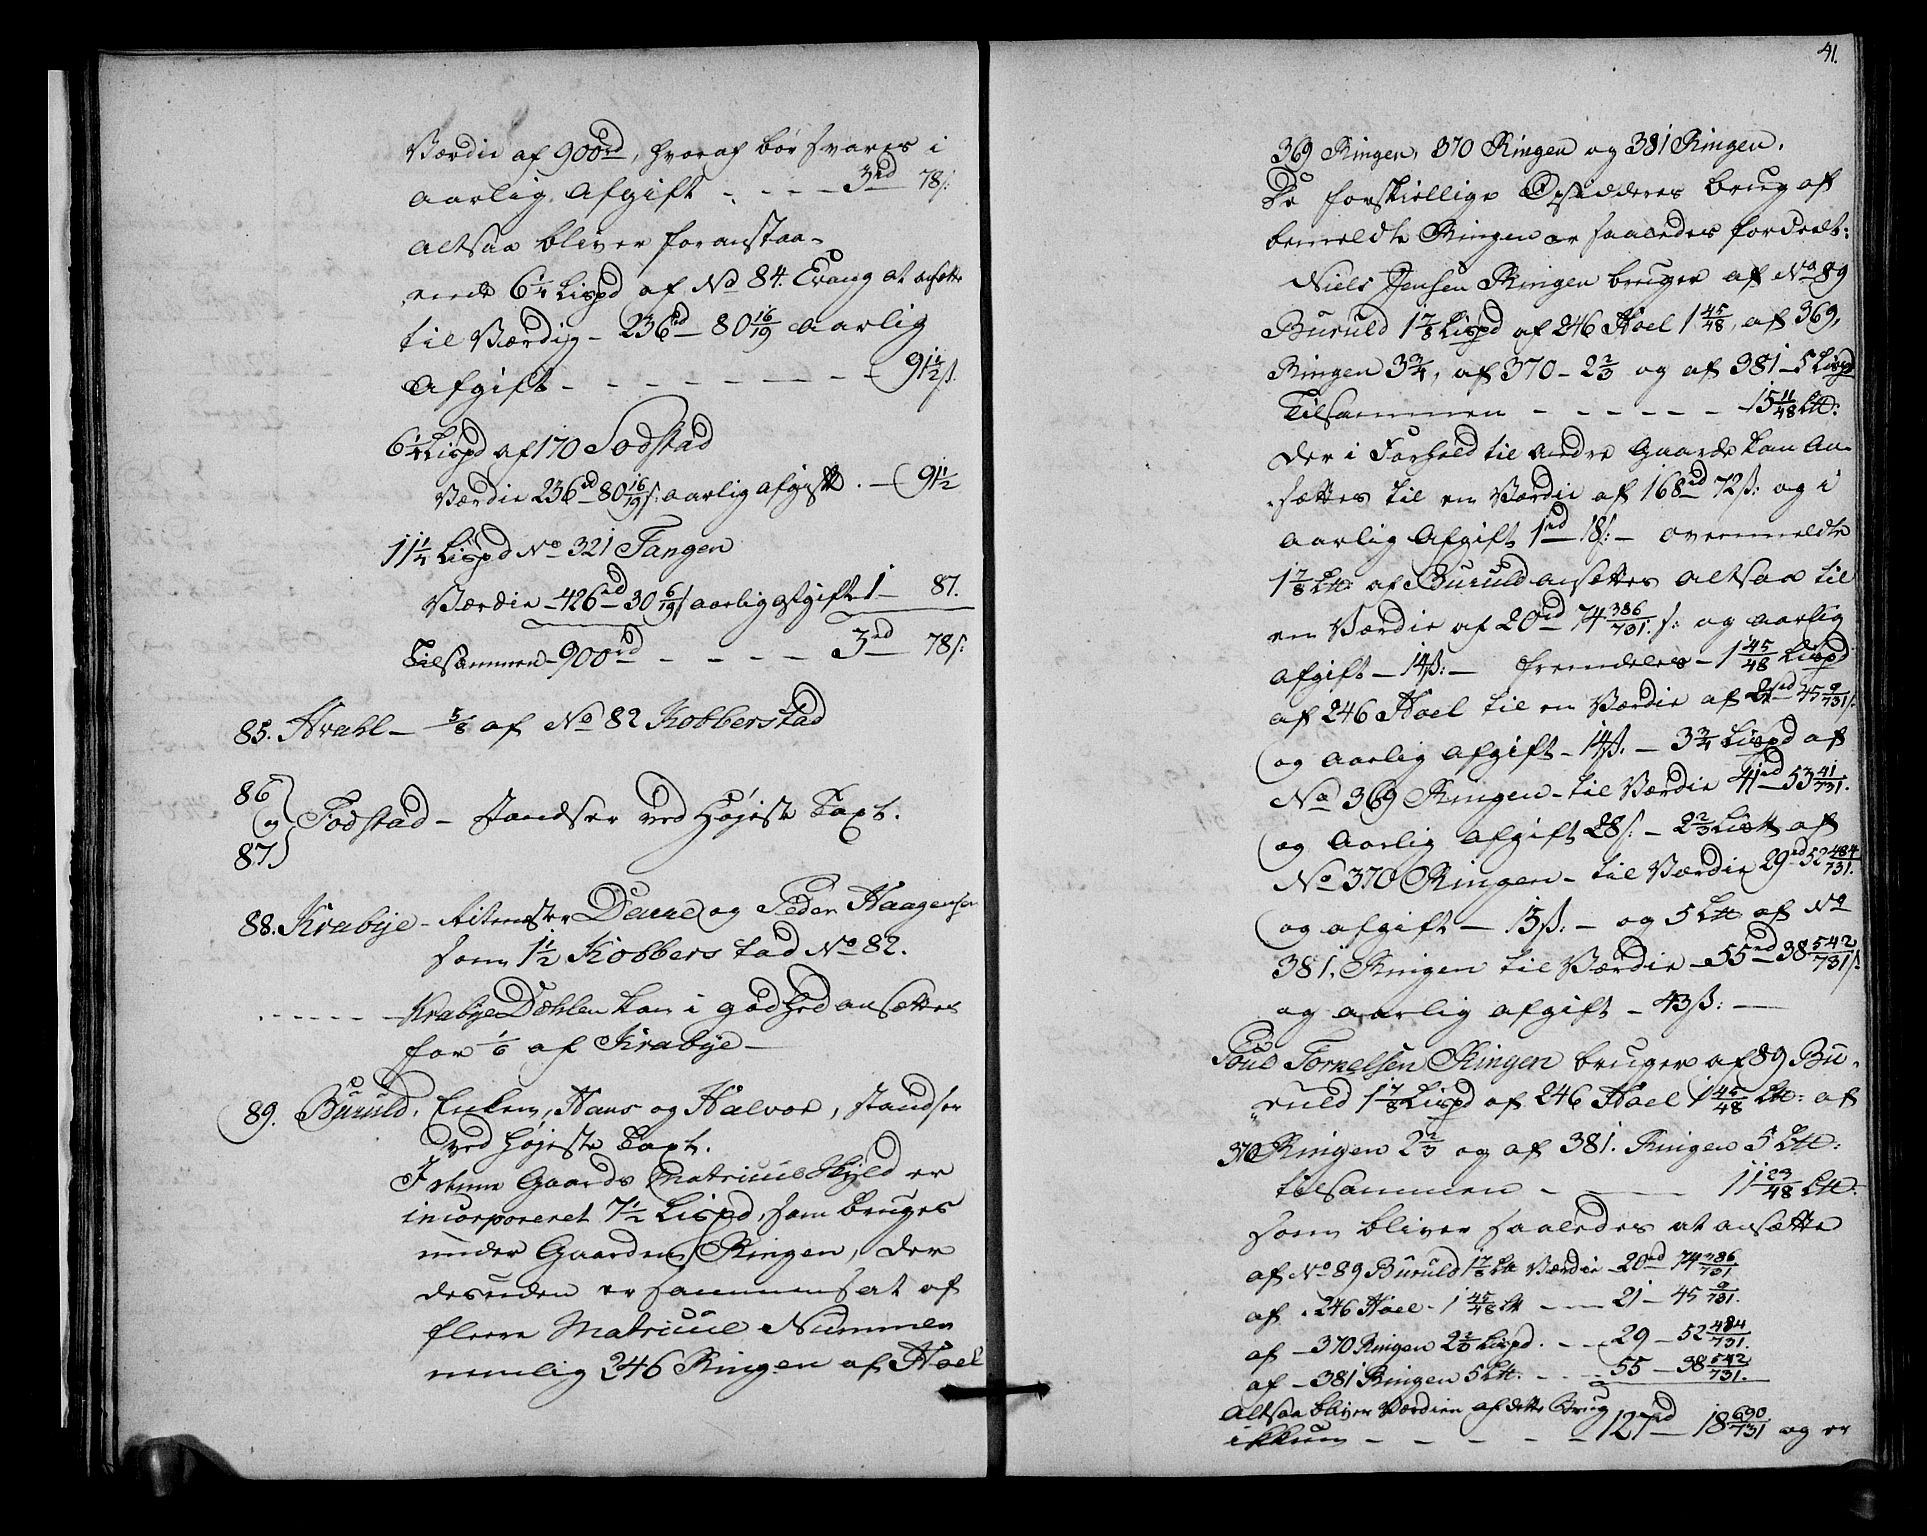 Værdie af 900rd, hvoraf bør svares i
aarlig Afgift - - - - 3rd 78ß:
altsaa bliver foranstaa-
ende 6 1/4 Lispd af No 84. Evang at ansætte
til Værdig - 236rd - 80 16/19 Aarlig
Afgift - - - - - - - - 91 1/2ß.
6 1/4 Lispd af 170 Sodstad
Værdie 236rd 80 16/19ß: aarlig afgift . - 91 1/2
11 1/4 Lispd No 321 Tangen
Værdie - 426rd - 30 6/19ß aarlig afgift 1 - 87.
Tilsammen - 900rd - - - - 3rd 78ß:
85. Hvahl - 5/8 af No 82 Kobberstad
86
og Fodstad - standser ved Højeste Taxt.
87
88. Krabye - Ritmester Deune og Peder Haagensen
som 1 1/2 Kobberstad No 82.
- - - - - - Krabye Dæhlen kan i godhed ansættes
for 1/6 af Krabye -
89. Buruld, Enken, Hans og Halvor, standser
ved højeste Taxt.
I denne Gaards Matricul Skyld er
incorporeret 7 1/2 Lispd, som bruges
under Gaarden Ringen, der
desuden er sammensat af
fleere Matricul Nummer
nemlig 246 Ringen af Hoel
41.
369 Ringen, 370 Ringen og 381 Ringen.
De forskiellige Opsidderes brug af
bemeldte Ringen er saaledes fordeelt:
Niels Jensen Ringen bruger af No 89
Buruld 1 7/8 Lispd af 246 Hoel 1 45/48, af 369,
Ringen 3 3/4, af 370 - 2 2/3 og af 381 - 5 Lispd
Tilsammen - - - - - - 15 11/48 L℔:
der i Forhold til andre Gaarde kan An-
sættes til en Værdie af 168rd 72ß: og i
aarlig Afgift 1rd 18ß: - overmeldte
1 7/8 L℔: af Buruld ansættes altsaa til
en Værdie af 20rd 74 386/731 ß: og aarlig
afgift - 14ß: - fremdeles - 1 45/48 Lispd
af 246 Hoel til en Værdie af 21rd 45 9/731ß.
og Aarlig Afgift - 14ß. - 3 3/4 Lispd af
No 369 Ringen - til Værdie 41rd - 53 41/731.
og Aarlig Afgift 28ß: - 2 2/3 L℔ af
No 370 Ringen - til Værdie 29rd 52 484/731.
og afgift - 13ß: - og 5 L℔ af No
381. Ringen til Værdie - 55rd 38 542/731ß.
og aarlig afgift - 43ß: -
Poul Torkelsen Ringen bruger af 89 Bu-
ruld 1 7/8 Lispd af 246 Hoel 1 45/48 L℔: af
370 Ringen 2 2/3 og af 381. Ringen 5 L℔:
tilsammen - - - 11 23/48 L℔:
som bliver saaledes at ansætte
af No 89 Buruld 1 7/8 L℔ Værdie - 20rd - 74 386/731
af - 246 Hoel - 1 45/48 L℔ - - - 21 - 45 9/731.
af - 370 Ringen 2 2/3 Lispd. - - - 29 - 52 484/731.
af - 381 Ringen 5 L℔: - - - - 55 - 38 542/731.
Altsaa bliver Værdien af dette Brug
ikkun - - - - - - 127rd - 18 690/731 og er